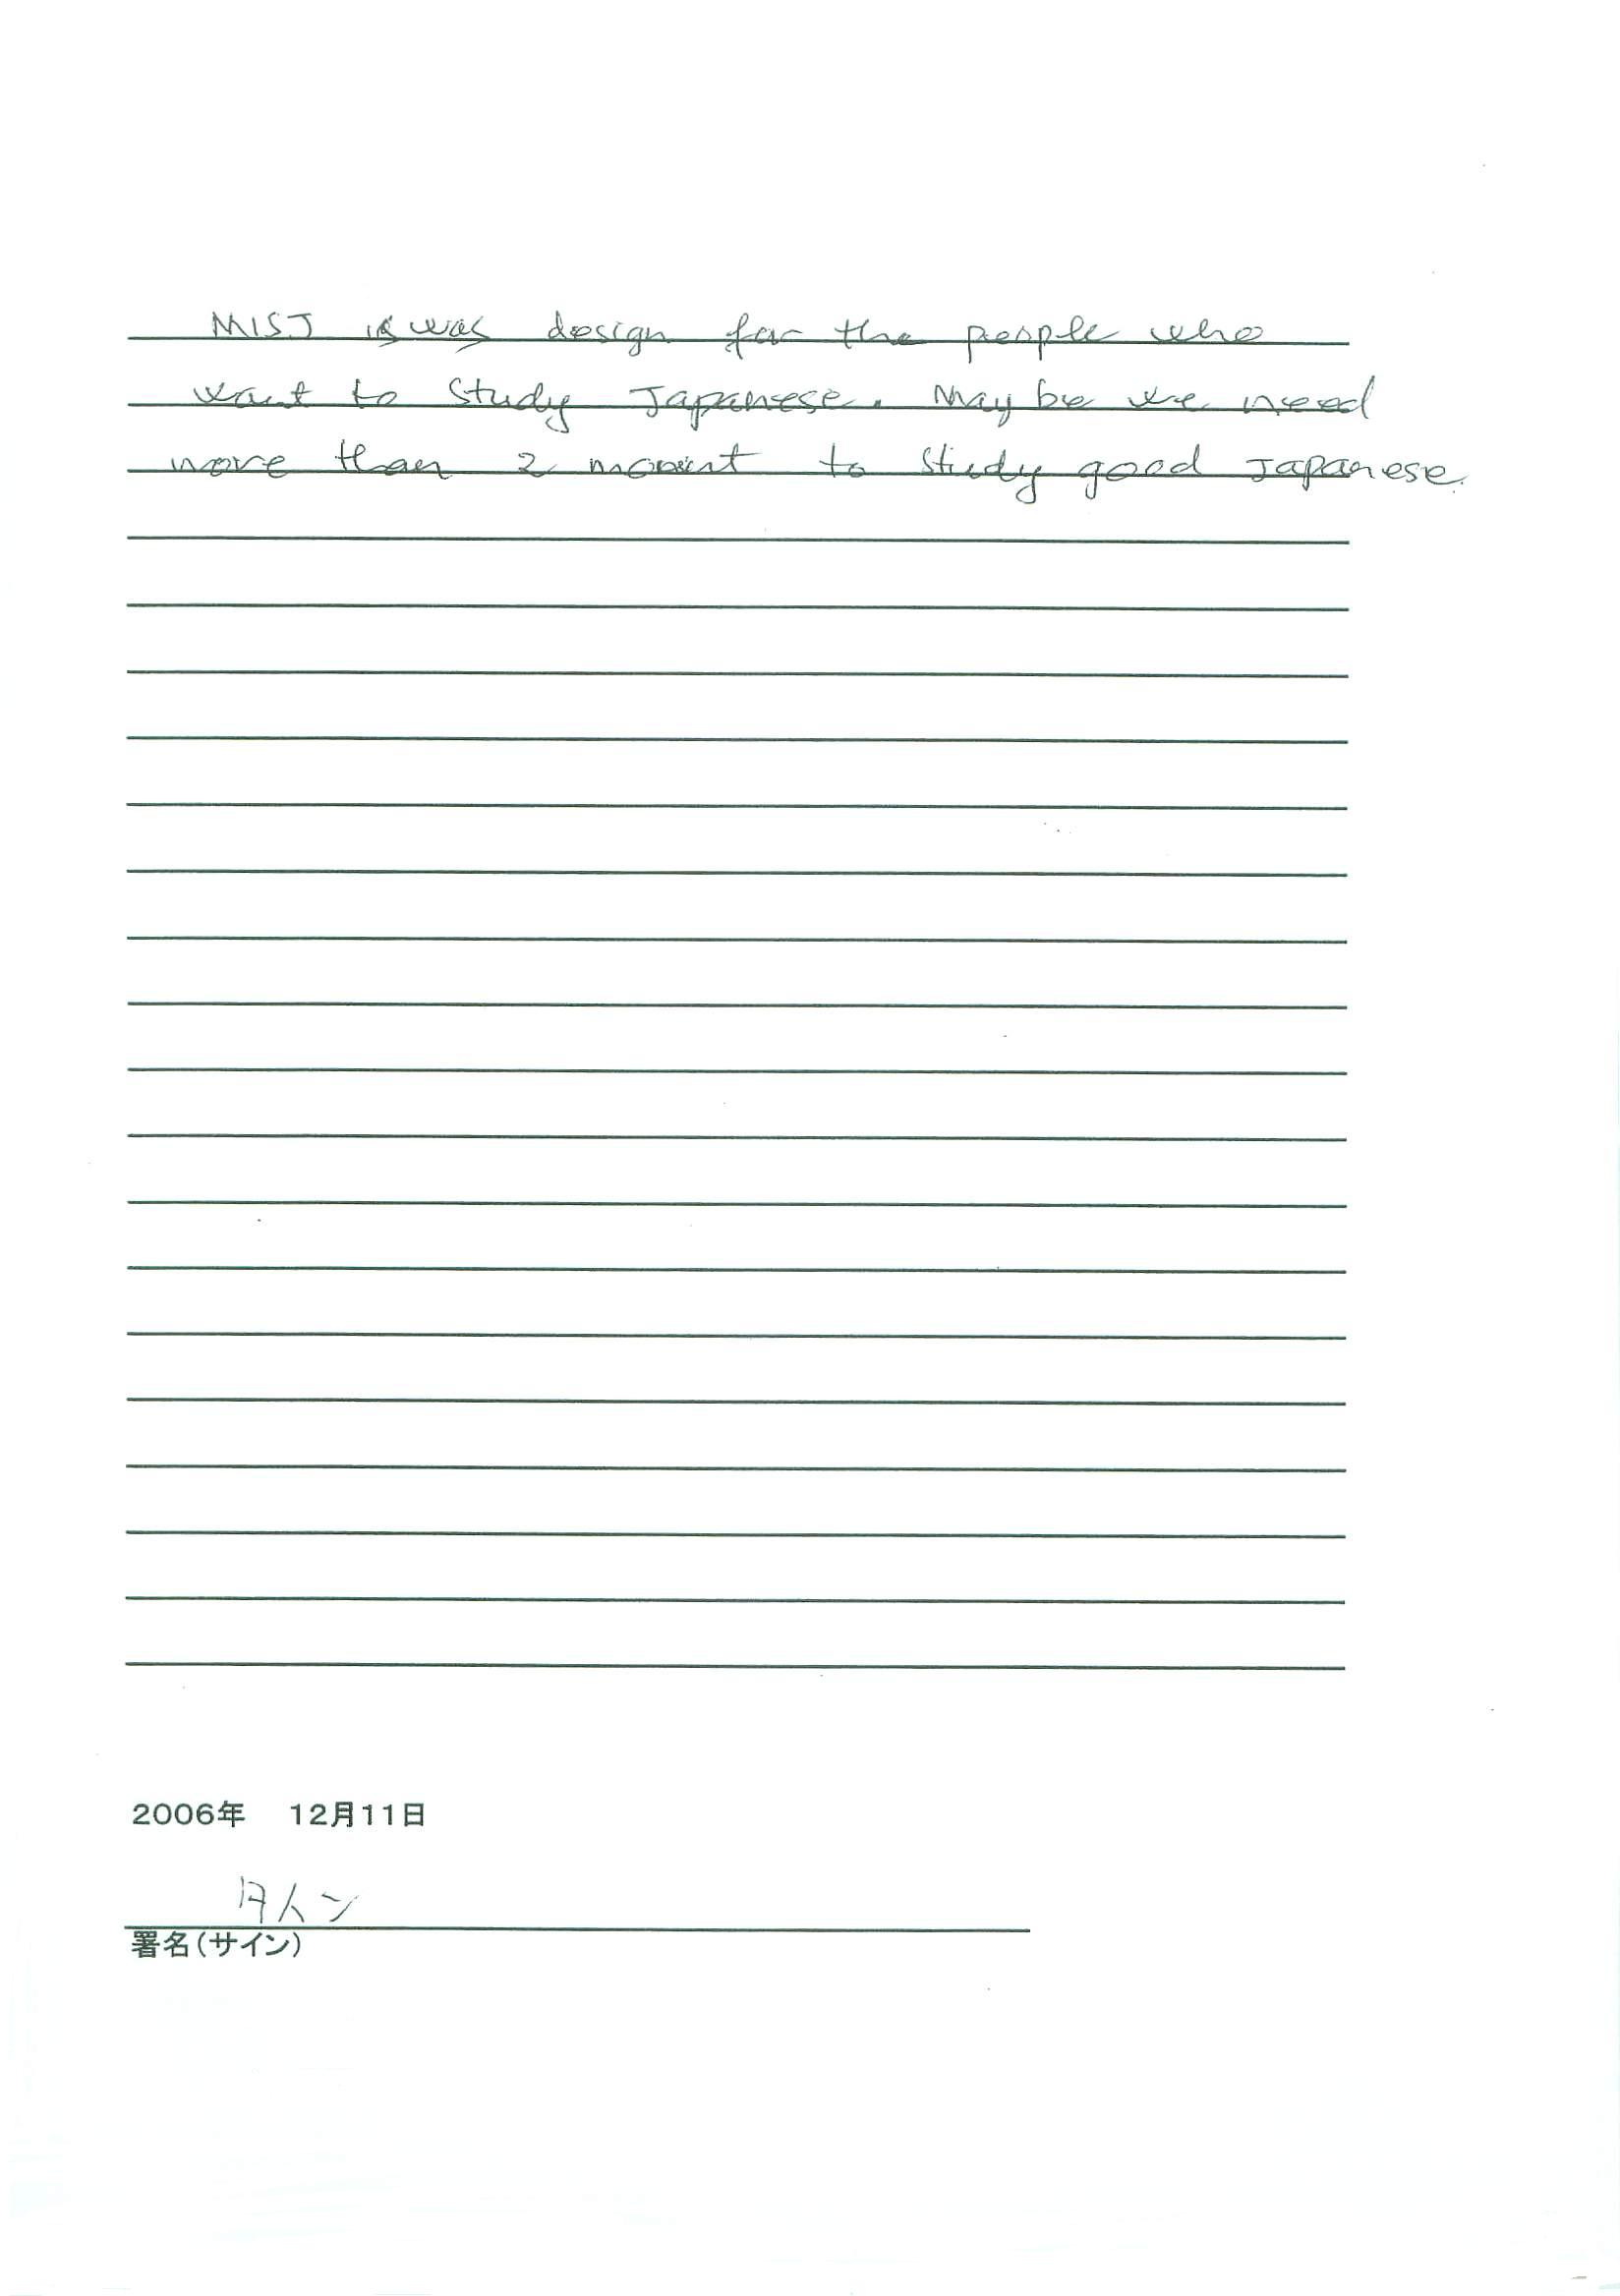 MISJ is was design for the people who
want to study Japanese. May be we need
more than 2 mount to study good Japanese.
2006年 12月11日
タイン
署名(サイン)